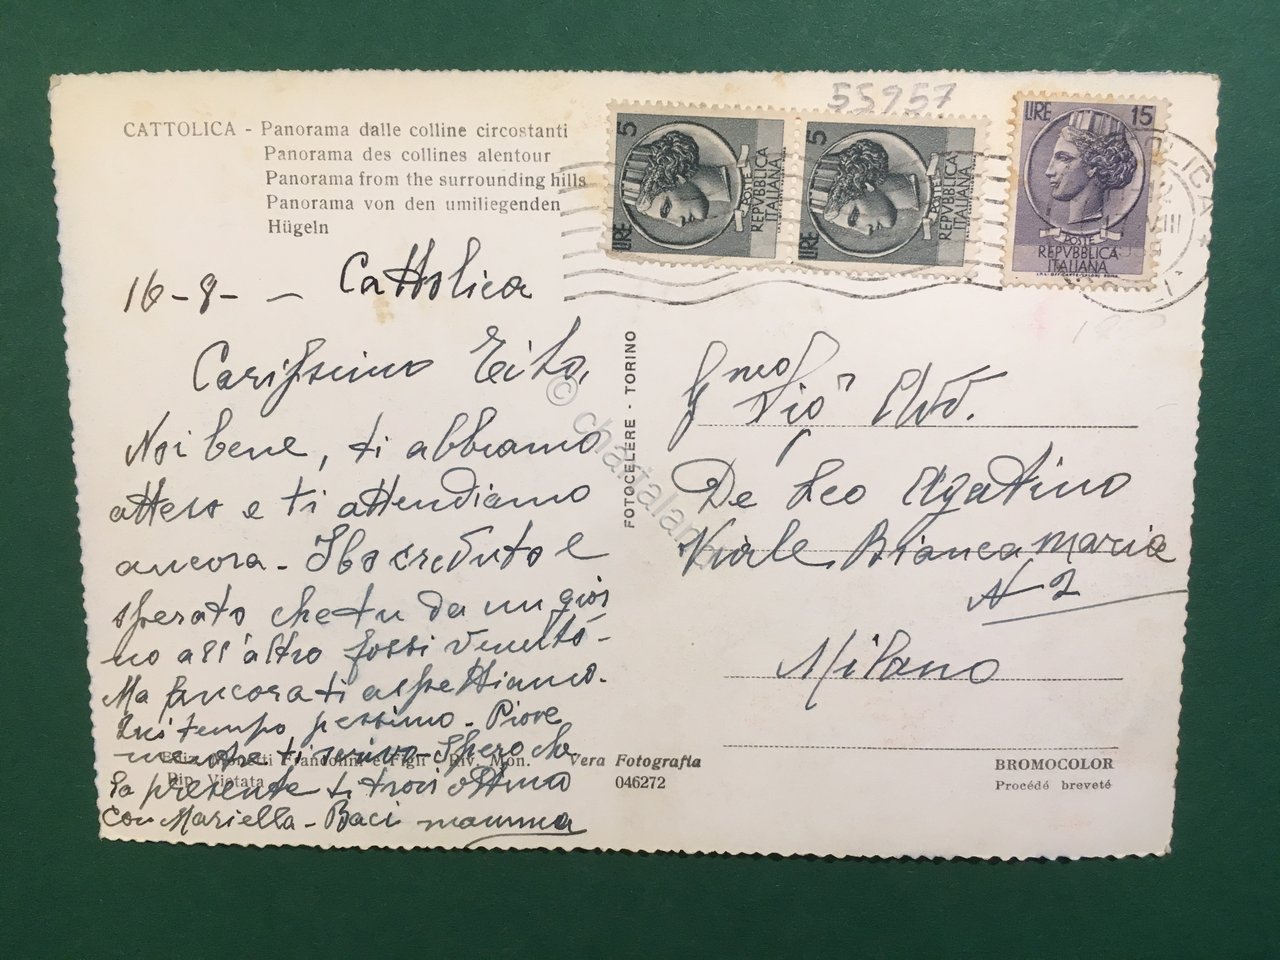 55957
CATTOLICA - Panorama dalle colline circostanti
Panorama des collines alentour
Panorama from the surrounding hills
Panorama von den umiliegenden
Hügeln
5
LIRE
POSTE
REPVBBLICA
ITALIANA
5
LIRE
POSTE
REPVBBLICA
ITALIANA
LIRE 15
POSTE
REPVBBLICA
ITALIANA
16-8- - Cattolica
Carissimo Tito,
Noi bene, ti abbiamo
atteso e ti attendiamo
ancora - Ho creduto e
sperato che tu da un gior
no all'altro fossi venuto -
Ma ancora ti aspettiamo.
Qui tempo pessimo - Piove
mentre ti scrivo - Spero che
la presente ti trovi ottimo
con Mariella - Baci mamma
Figli Riv. Mon.
Rip. Vietata
FOTOCELERE - TORINO
© chartaland
Sigr
De Leo Agatino
Viale Bianca Maria
N 2
Milano
Vera Fotografia
046272
BROMOCOLOR
Procédé breveté